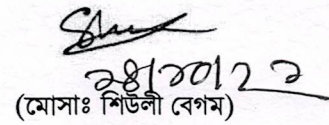 ২৪/১০/২২
(মোসাঃ শিউলী বেগম)